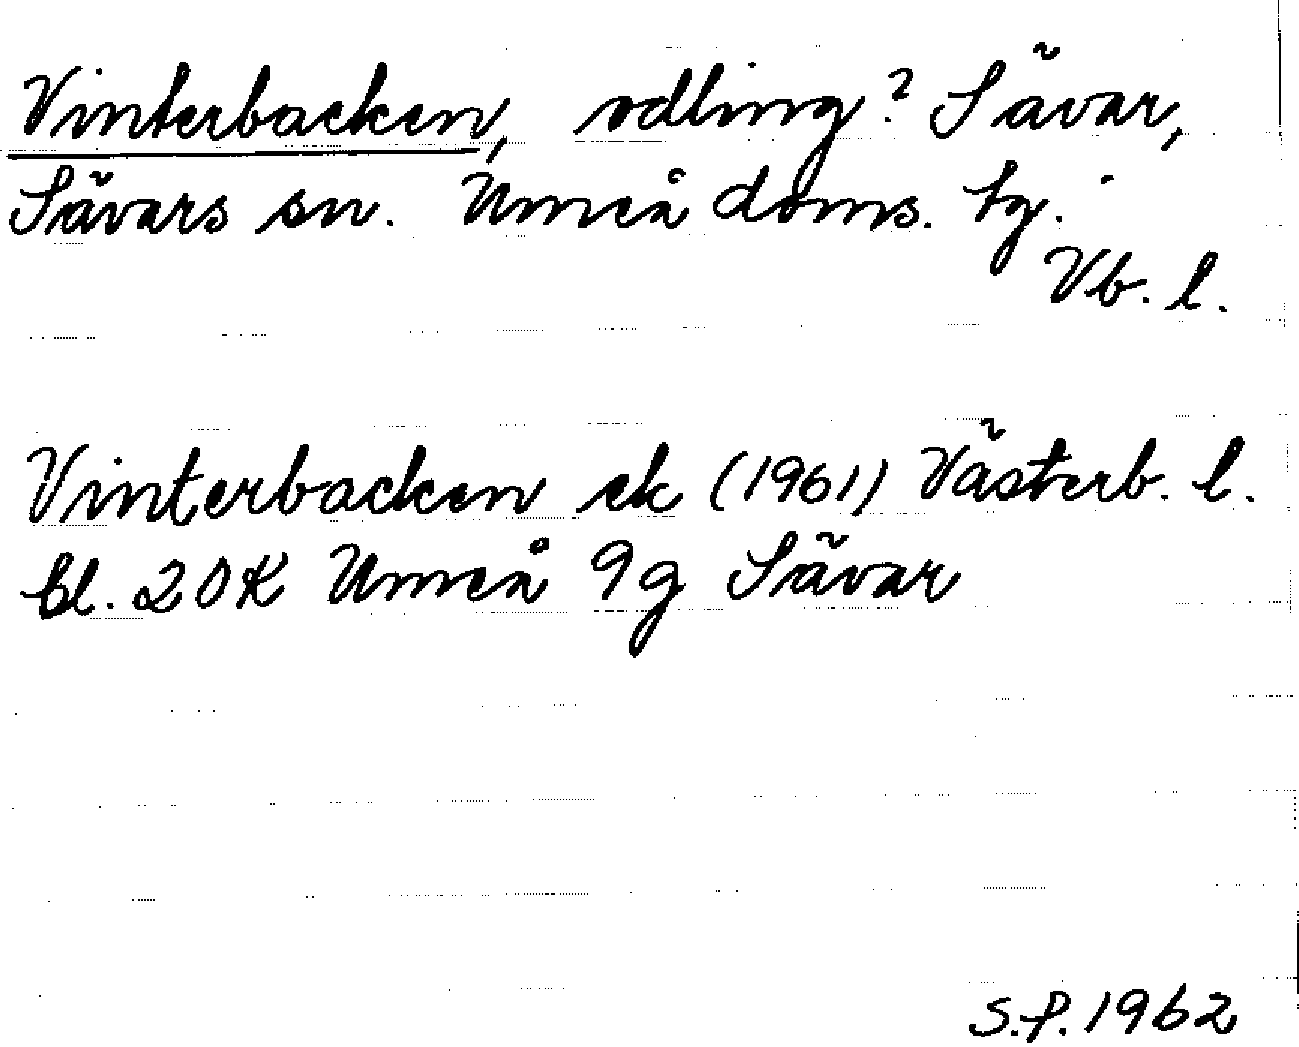 Vinterbacken, odling? Sävar,
Sävars sn. Umeå doms. tg.
Vb. l.
Vinterbacken ek (1961) Västerb. l.
bl. 20K Umeå 9g Sävar
S.P. 1962